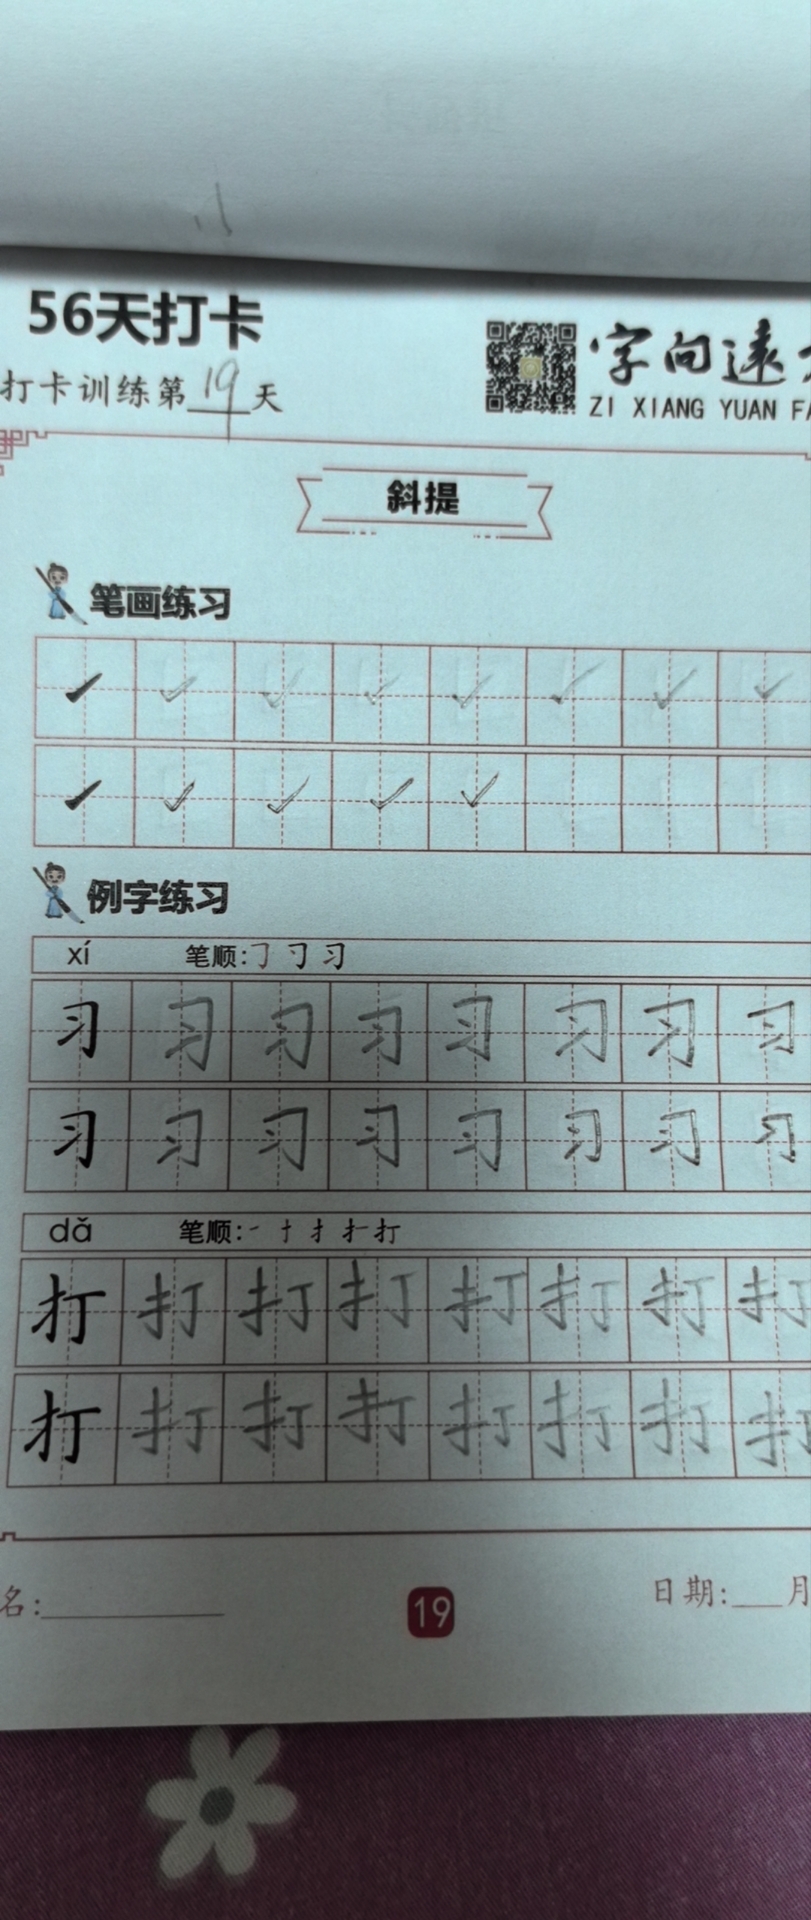 56天打卡
打卡训练第19天
字向远
ZI XIANG YUAN FA
斜提
笔画练习
例字练习
xí 笔顺:
习 习 习 习 习 习 习 习
习 习 习 习 习 习 习 习
dǎ 笔顺:
打 打 打 打 打 打 打 打
打 打 打 打 打 打 打 打
名:
19
日期: 月